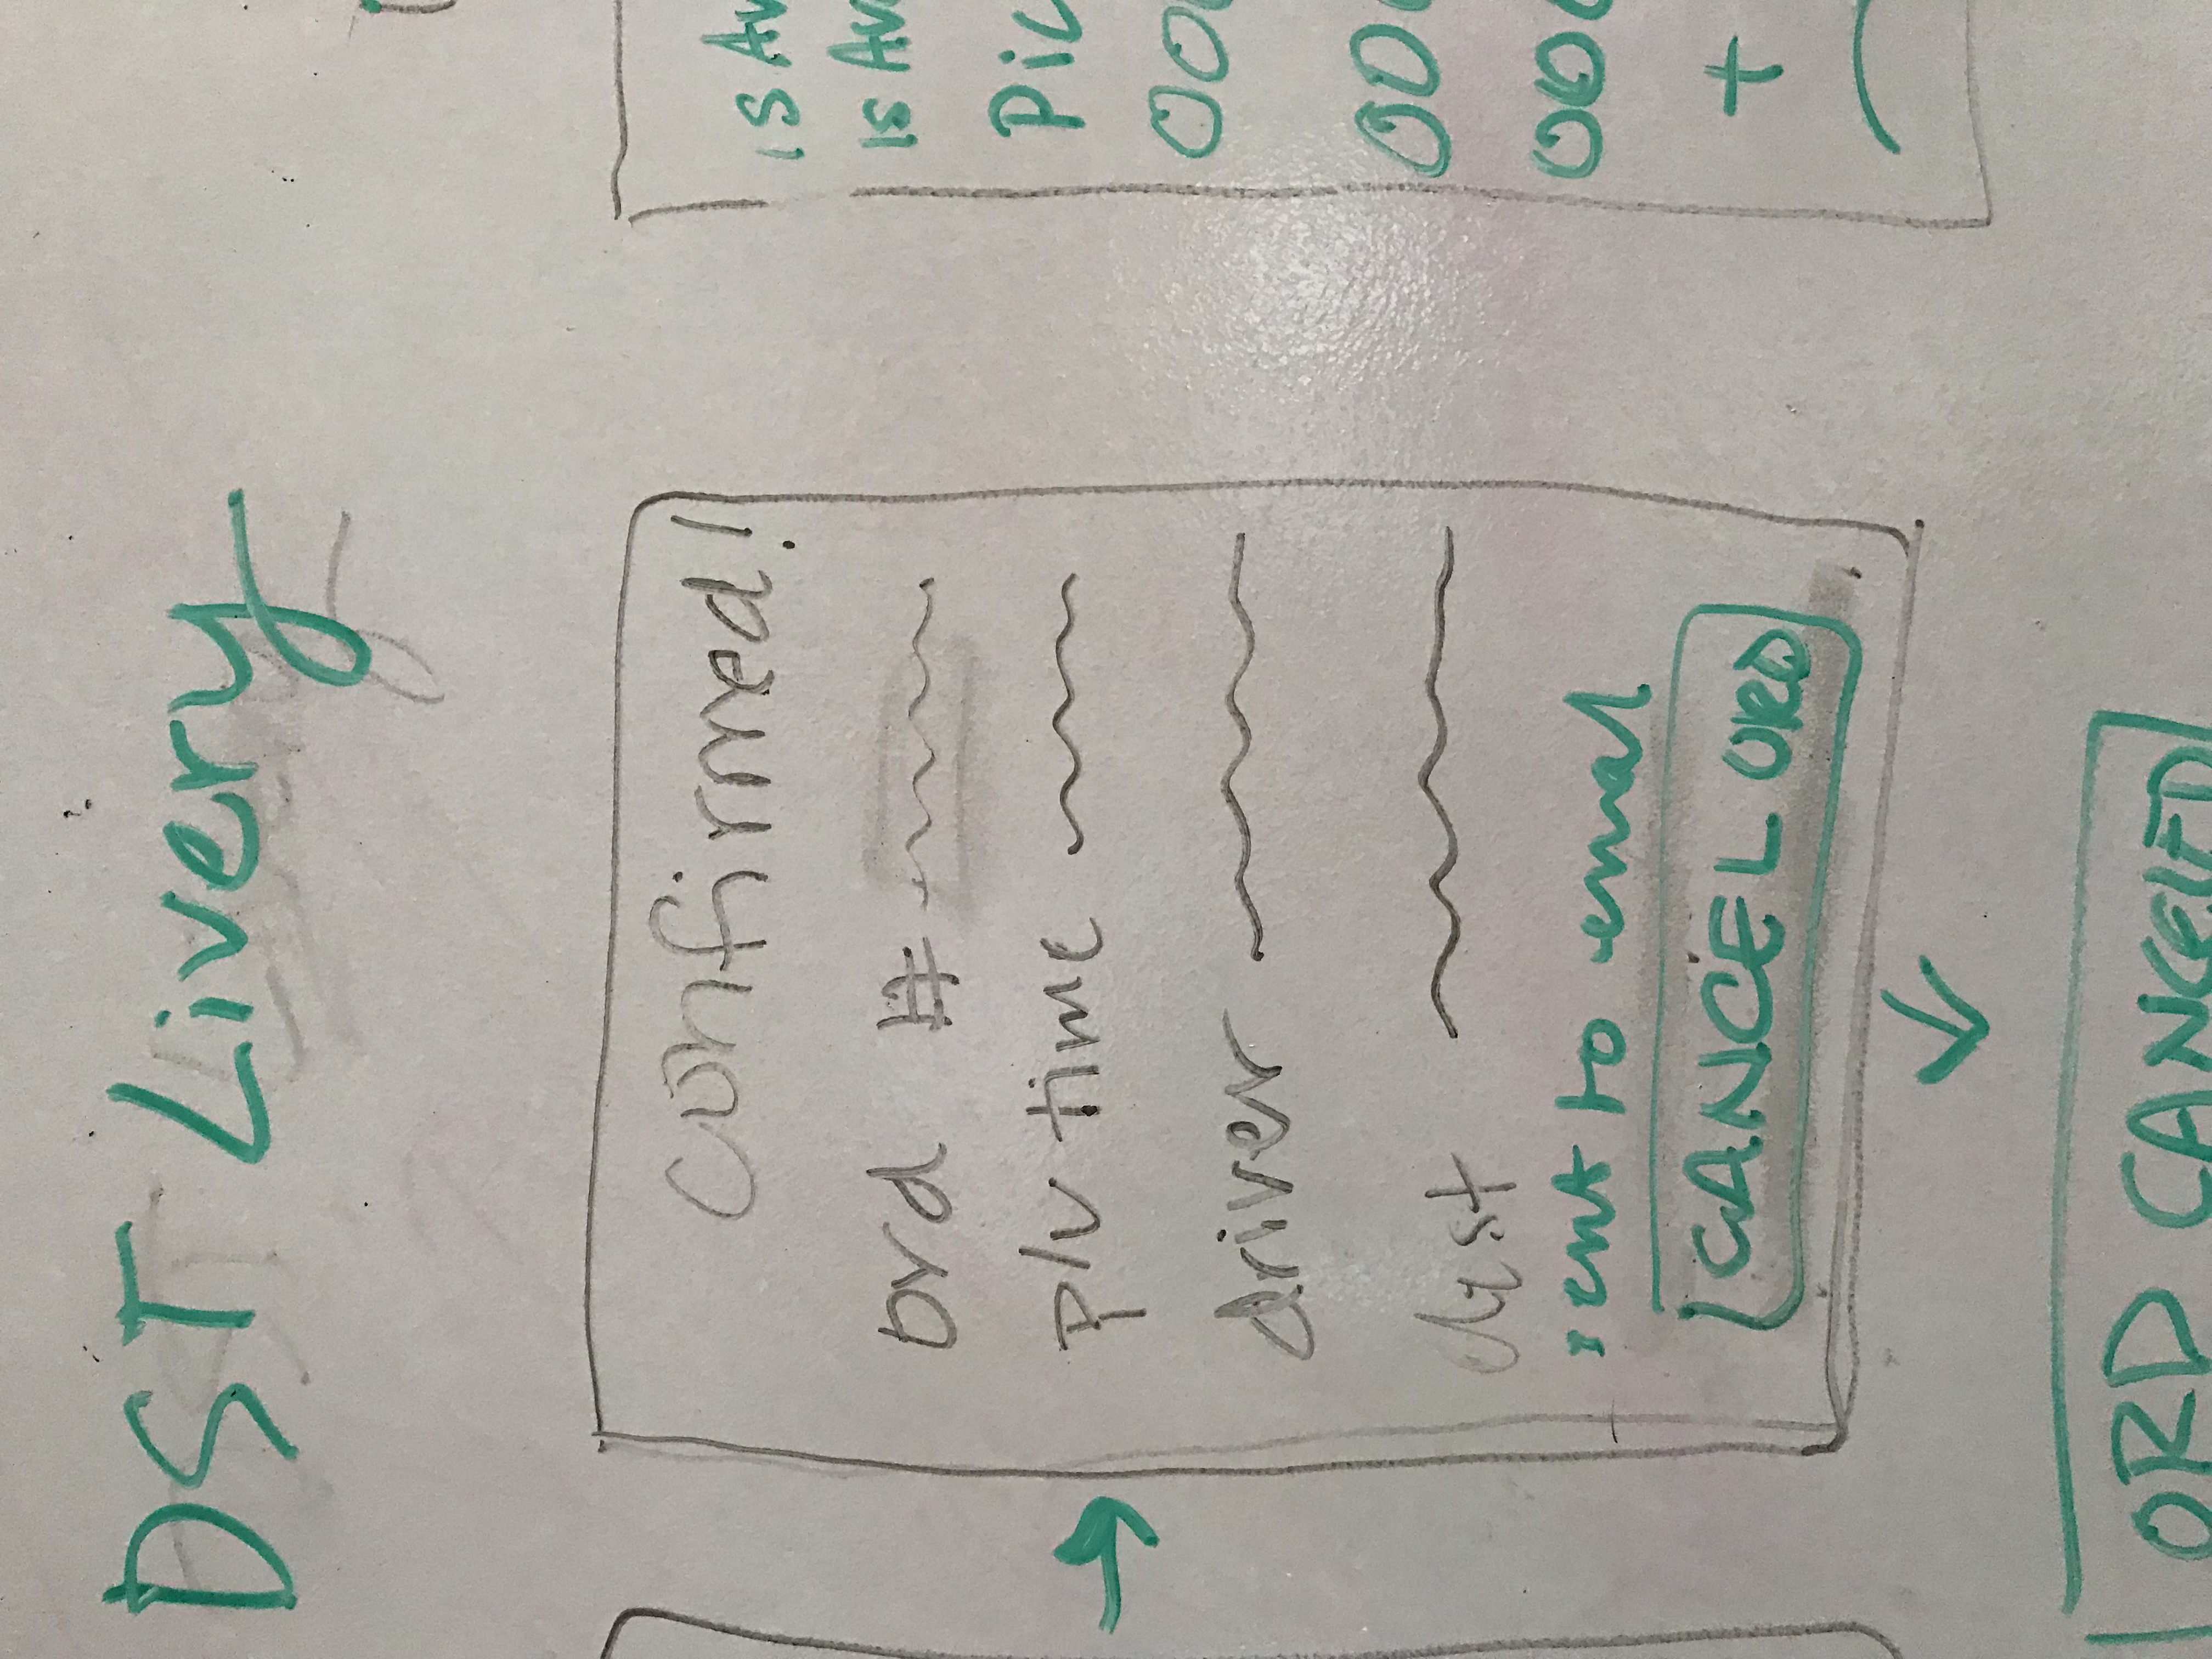 DST Livery
Confirmed!
ord #
p/u time
driver
dest
sent to email
CANCEL ORD
ORD CANCELED
is Av
is Av
Pic
000
000
000
+